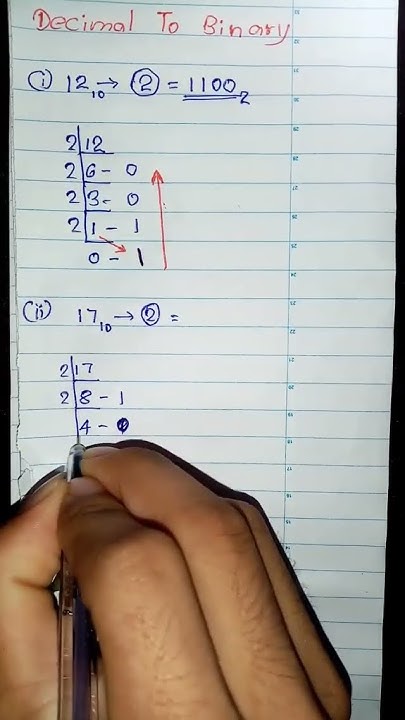 Decimal To Binary
(i) 12₁₀ → ② = 1100₂
2 12
2 6 - 0
2 3 - 0
2 1 - 1
0 - 1
(ii) 17₁₀ → ② =
2 17
2 8 - 1
4 - 0